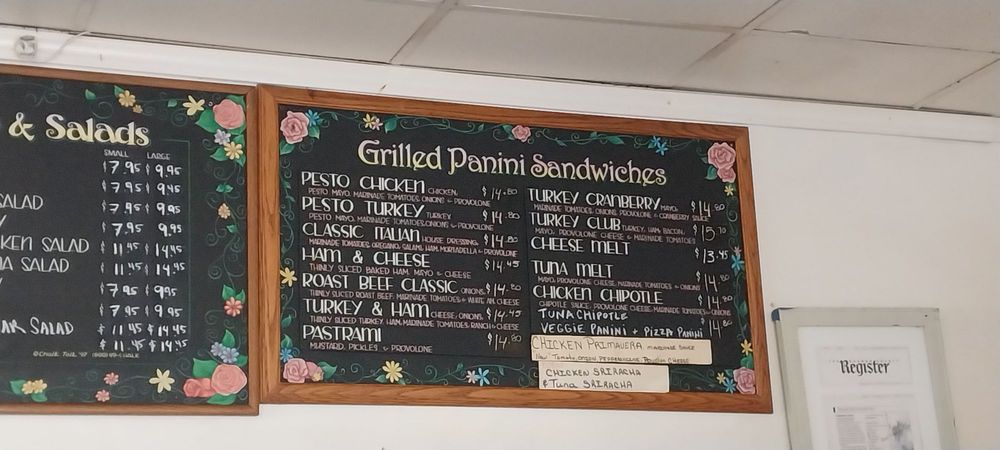 & Salads
SMALL LARGE
$7.95 $9.95
$7.95 $9.95
SALAD $7.95 $9.95
$7.95 9.95
KEN SALAD $11.45 $14.95
NA SALAD $11.45 $14.95
$7.95 $9.95
$7.95 $9.95
SALAD $11.45 $14.45
$11.45 $14.95
Grilled Panini Sandwiches
PESTO CHICKEN CHICKEN, $14.80
PESTO MAYO, MARINADE TOMATOES, ONIONS & PROVOLONE
PESTO TURKEY TURKEY $14.80
PESTO MAYO, MARINADE TOMATOES, ONIONS & PROVOLONE
CLASSIC ITALIAN HOUSE DRESSING, $14.80
MARINADE TOMATOES, OREGANO, SALAMI, HAM, MORTADELLA & PROVOLONE
HAM & CHEESE $14.45
THINLY SLICED BAKED HAM, MAYO & CHEESE
ROAST BEEF CLASSIC ONIONS, $14.80
THINLY SLICED ROAST BEEF, MARINADE TOMATOES & WHITE AM. CHEESE
TURKEY & HAM CHEESE, ONIONS, $14.45
THINLY SLICED TURKEY, HAM, MARINADE TOMATOES, RANCH & CHEESE
PASTRAMI $14.80
MUSTARD, PICKLES & PROVOLONE
TURKEY CRANBERRY MAYO, $14.80
MARINADE TOMATOES, ONIONS, PROVOLONE & CRANBERRY SAUCE
TURKEY CLUB TURKEY, HAM, BACON, $15.70
MAYO, PROVOLONE CHEESE & MARINADE TOMATOES
CHEESE MELT $13.45
TUNA MELT $14.80
MAYO, PROVOLONE CHEESE, MARINADE TOMATOES & ONIONS
CHICKEN CHIPOTLE $14.80
CHIPOTLE SAUCE, PROVOLONE CHEESE, MARINADE TOMATOES & ONIONS
TUNA CHIPOTLE
VEGGIE PANINI + PIZZA PANINI $14.80
CHICKEN PRIMAVERA MARINADE SAUCE
Tomato, onion, PEPPERONCINI, Provolon CHEESE
CHICKEN SRIRACHA
& Tuna SRIRACHA
Register